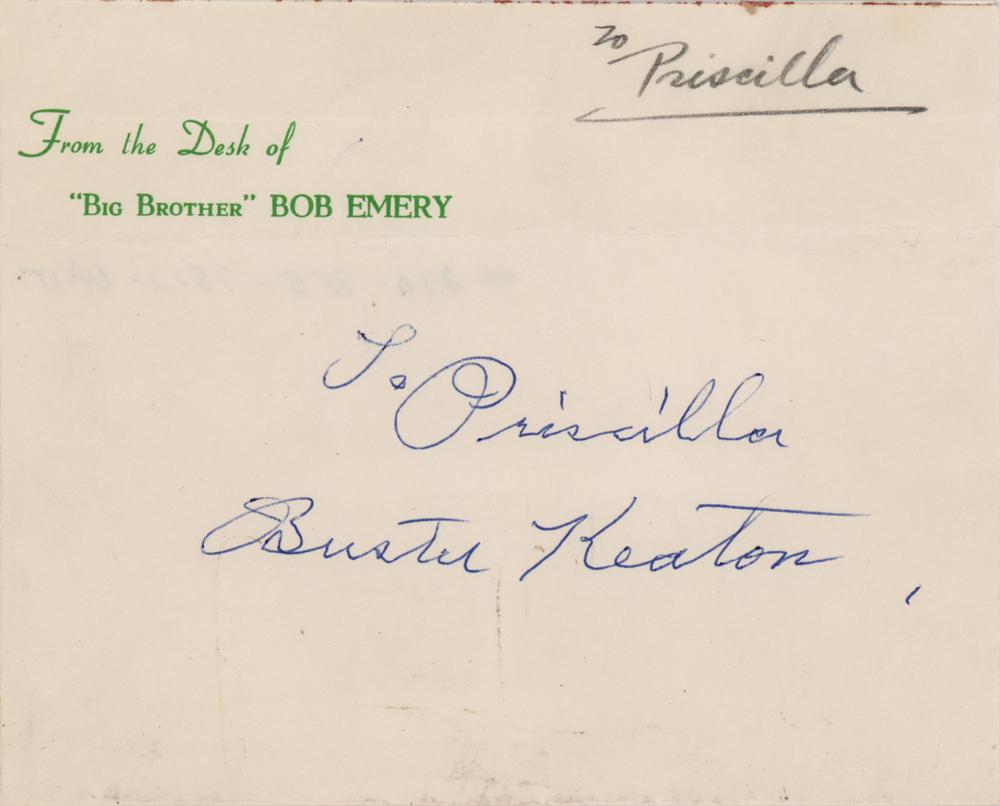 To
Priscilla
From the Desk of
"Big Brother" BOB EMERY
To Priscilla
Buster Keaton